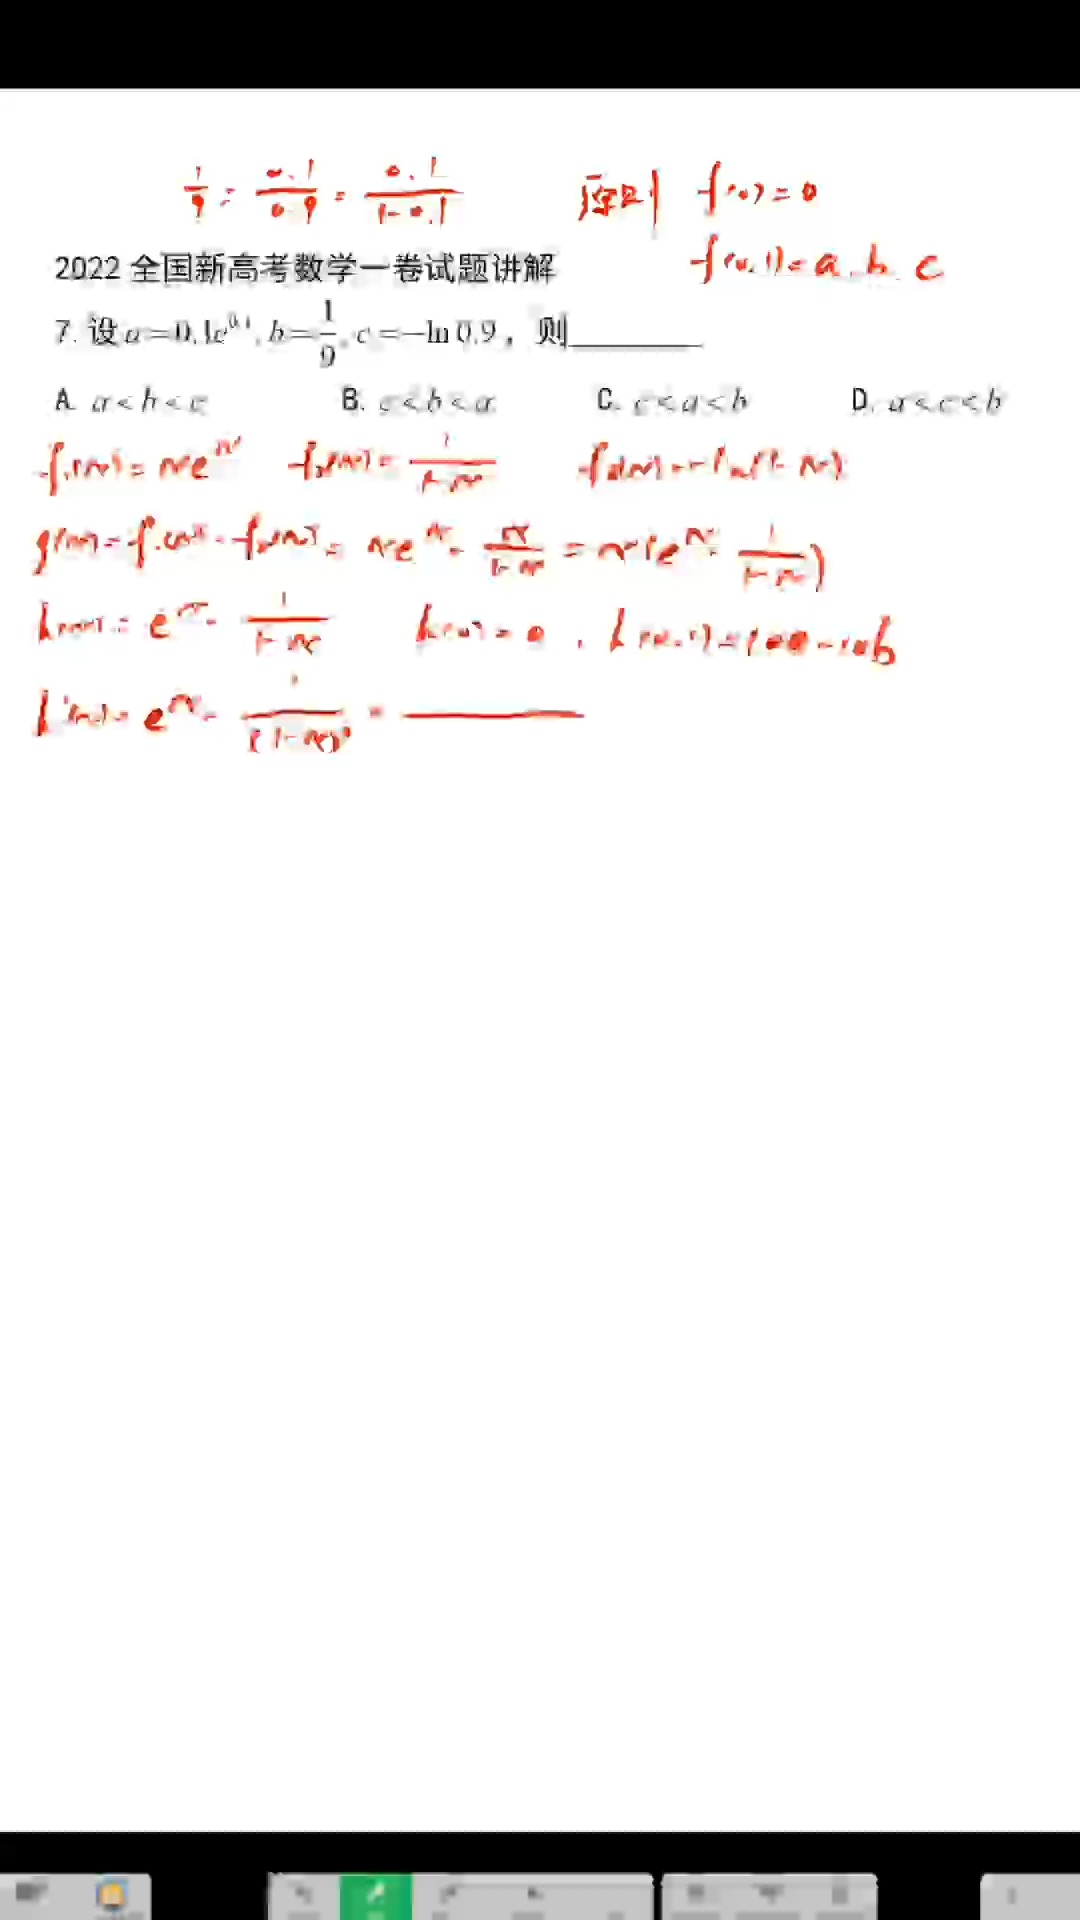 1/9 = 0.1/0.9 = 0.1/(1-0.1) 原则 f(0)=0
f(0.1)=a、b、c
2022 全国新高考数学一卷试题讲解
7. 设 a=0.1e^0.1, b=1/9, c=-ln 0.9，则________
A. a<b<c B. c<b<a C. c<a<b D. a<c<b
f₁(x)=xe^x f₂(x)= 1/(1-x) f₃(x)=-ln(1-x)
g(x)=f₁(x)-f₂(x)=xe^x-x/(1-x)=x(e^x-1/(1-x))
h(x)=e^x-1/(1-x) h(0)=0, h(0.1)=10a-10b
h'(x)=e^x-1/(1-x)²=